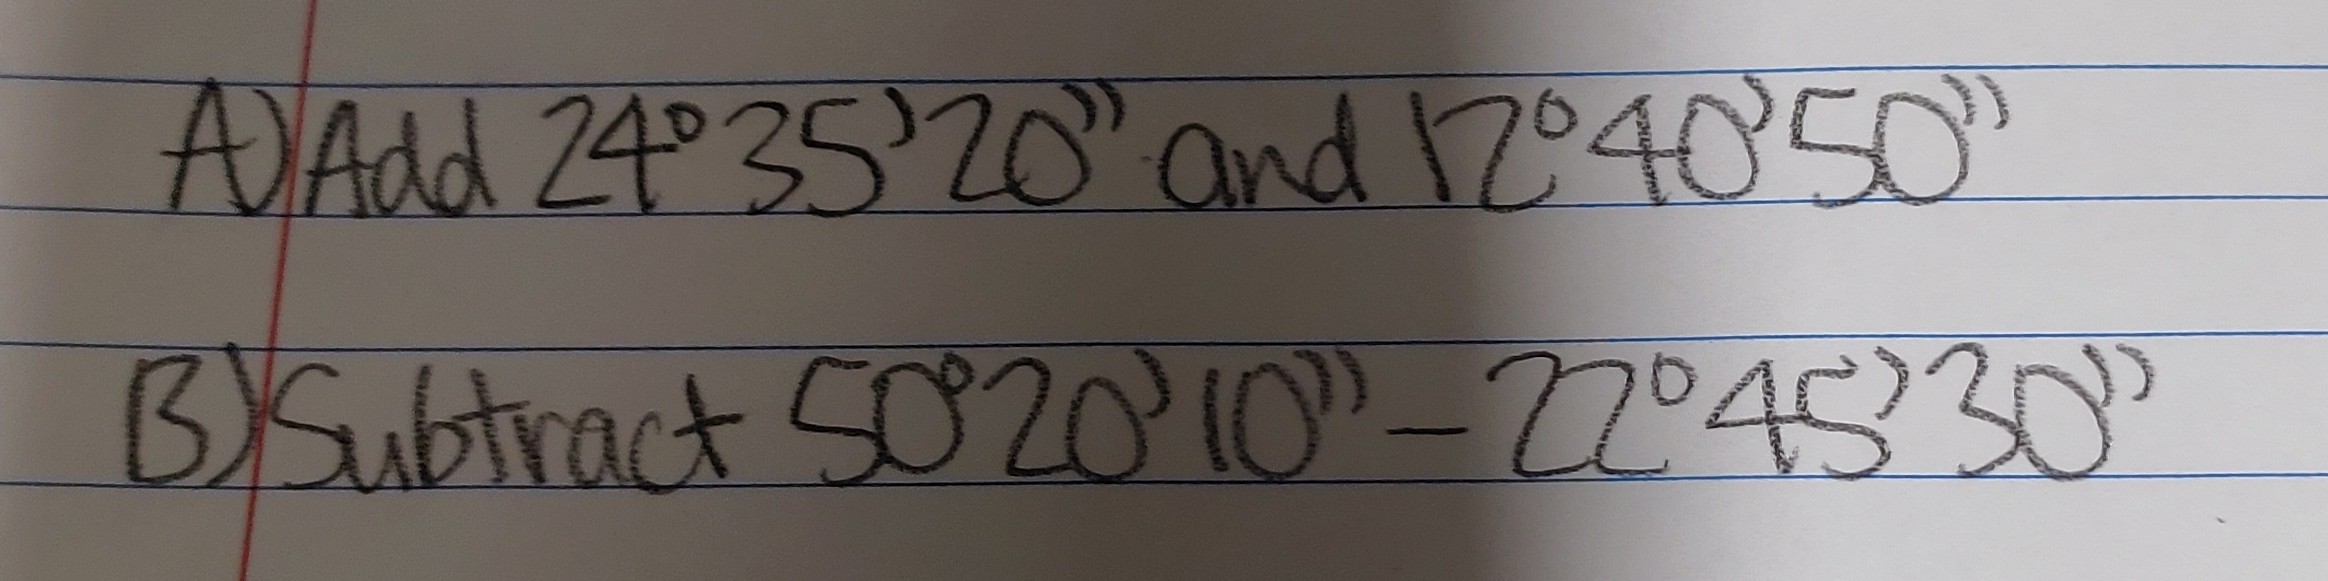 A) Add 24° 35' 20" and 12° 40' 50"
B) Subtract 50° 20' 10" - 22° 45' 30"